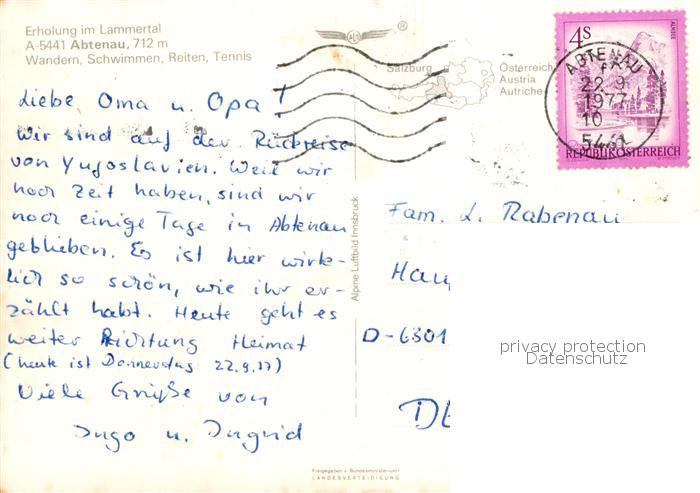 Erholung im Lammertal
A-5441 Abtenau, 712 m
Wandern, Schwimmen, Reiten, Tennis
®
Salzburg
Österreich
Austria
Autriche
4S
ALMSEE
REPUBLIK ÖSTERREICH
ABTENAU
22.9.
1977
10
5441
Liebe Oma u. Opa!
Wir sind auf der Rückreise
von Yugoslavien. Weil wir
noch Zeit haben, sind wir
noch einige Tage in Abtenau
geblieben. Es ist hier wirk-
lich so schön, wie ihr er-
zählt habt. Heute geht es
weiter Richtung Heimat
(heute ist Donnerstag 22.9.77)
Viele Grüße von
Ingo u. Ingrid
Alpine Luftbild Innsbruck
Fam. L. Rabenau
Hau
D-6301
privacy protection
Datenschutz
Freigegeben v. Bundesministerium f.
LANDESVERTEIDIGUNG